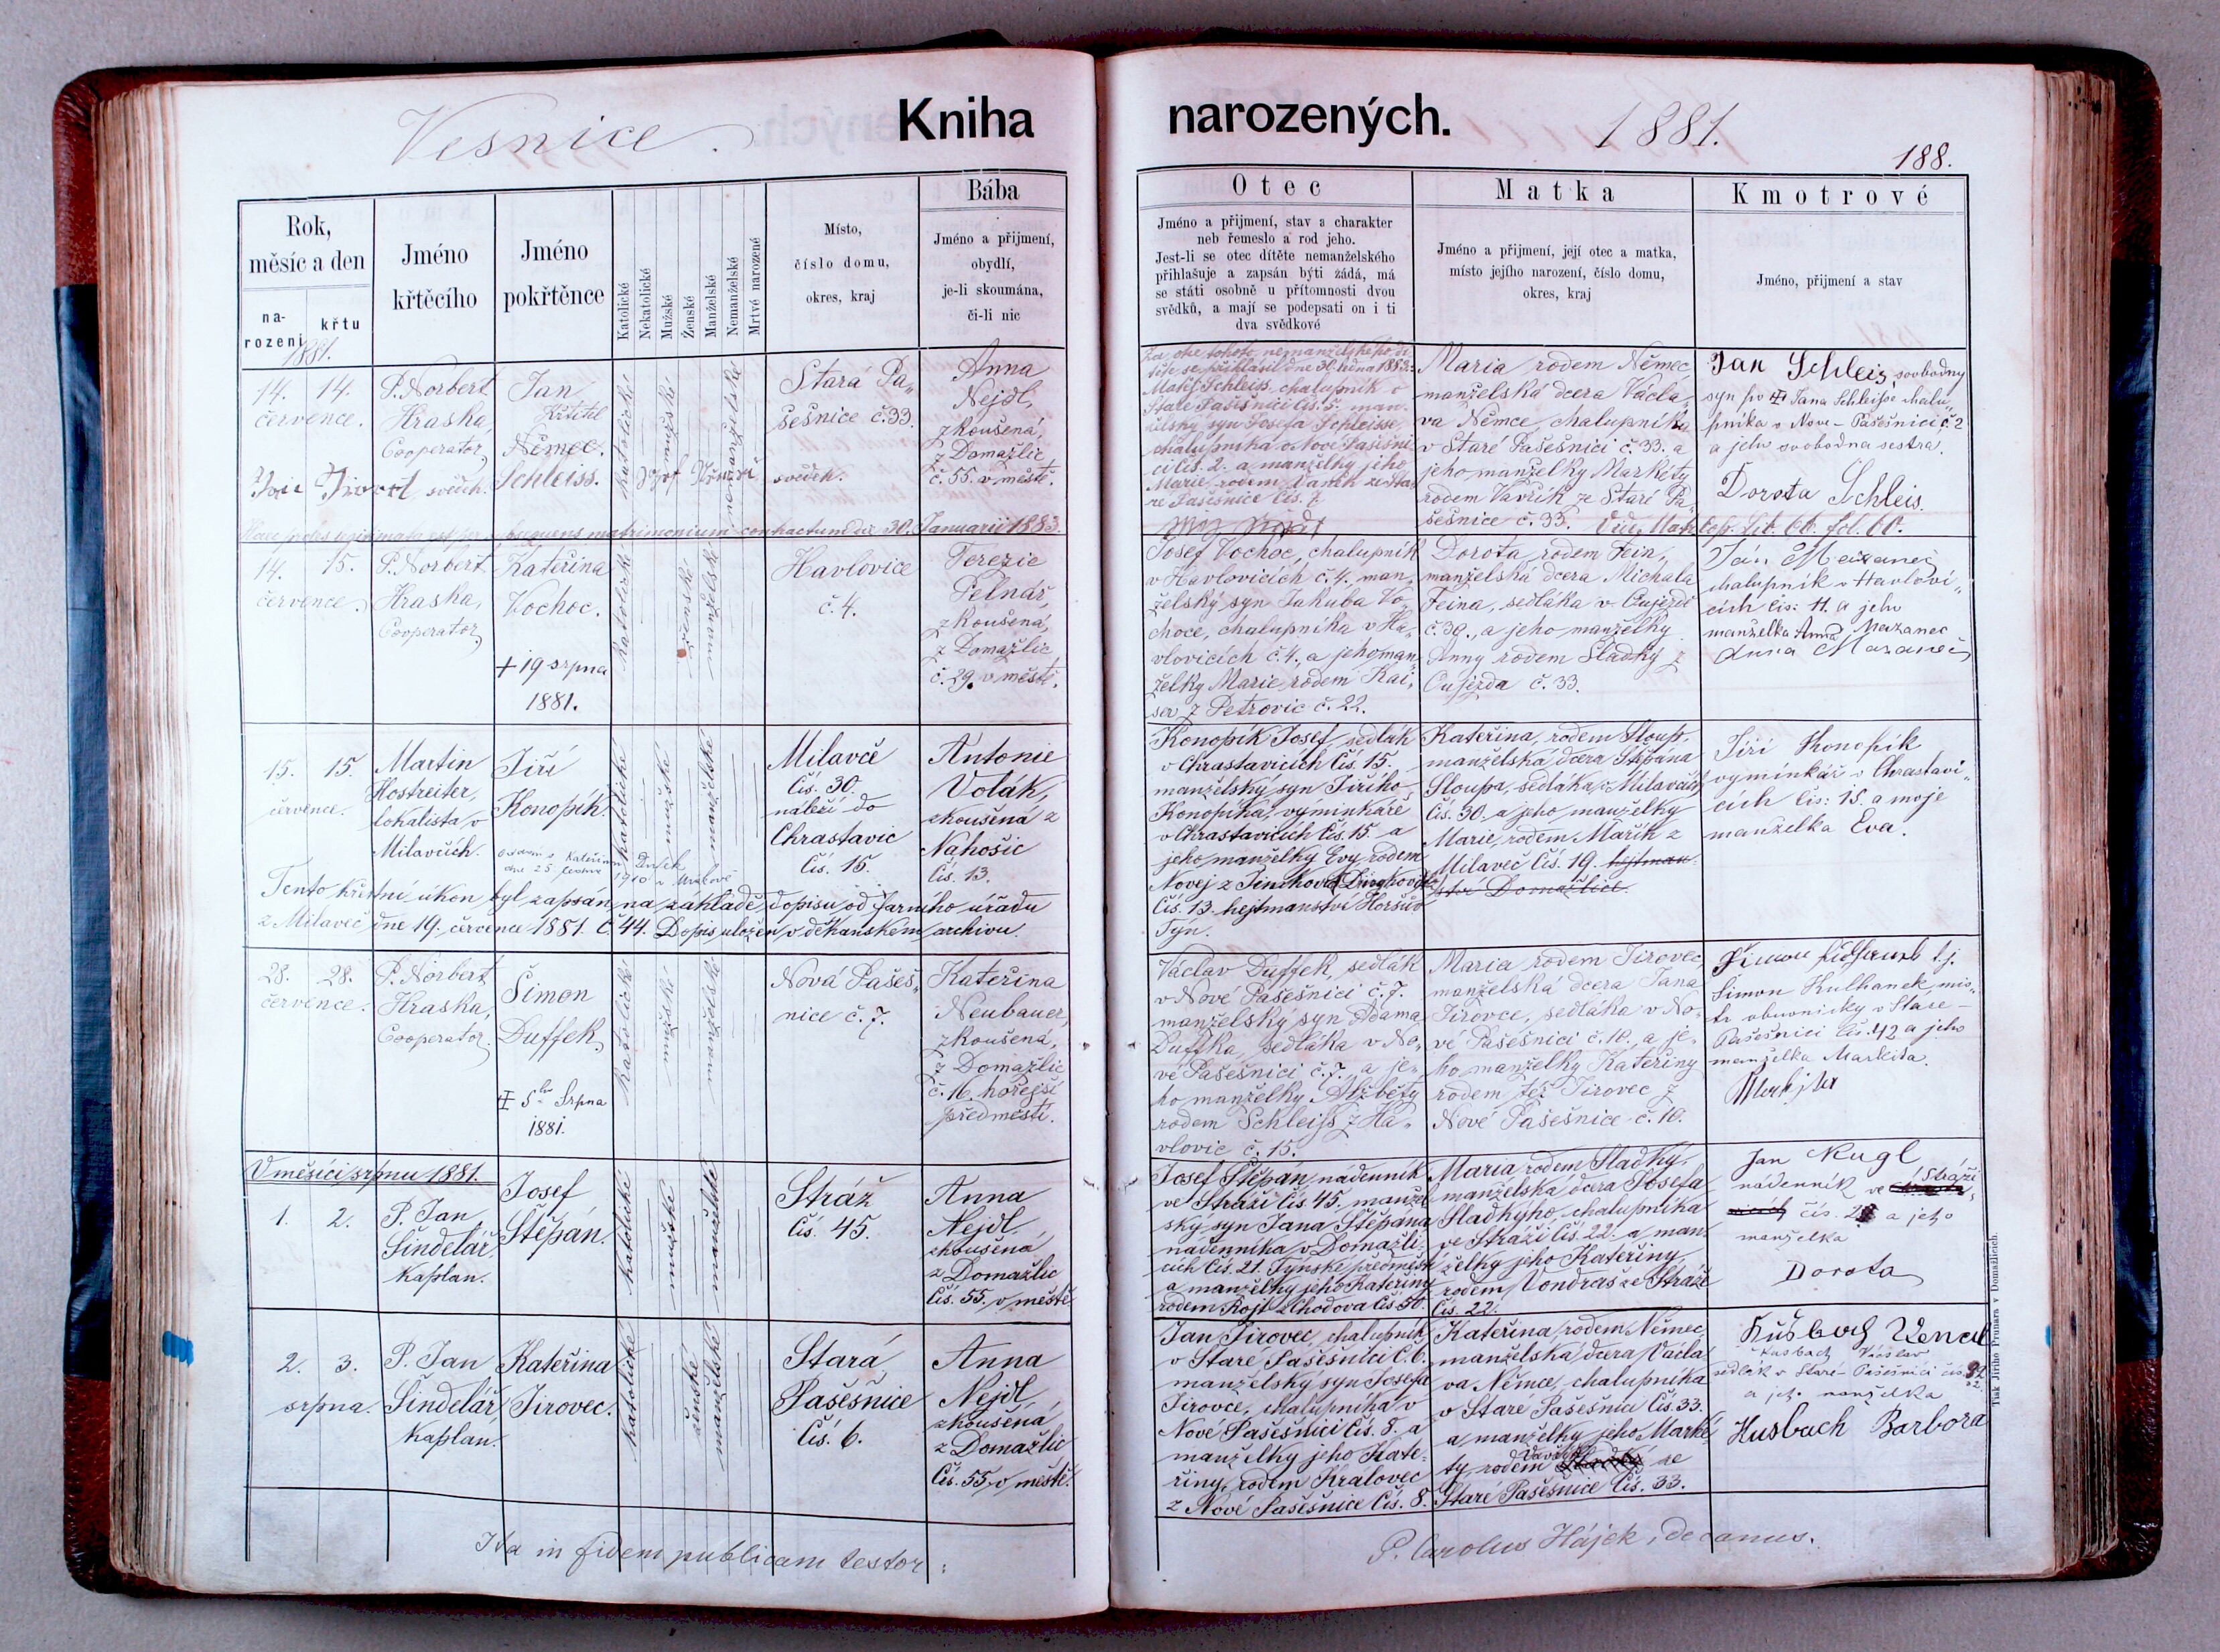 Vesnice.
Kniha
narozených.
1881.
188.
Rok,
měsíc a den
na-
rození
křtu
Jméno
křtěcího
Jméno
pokřtěnce
Katolické
Nekatolické
Mužské
Ženské
Manželské
Nemanželské
Mrtvě narozené
Místo,
číslo domu,
okres, kraj
Bába
Jméno a přijmení,
obydlí,
je-li skoumána,
či-li nic
Otec
Jméno a přijmení, stav a charakter
neb řemeslo a rod jeho.
Jest-li se otec dítěte nemanželského
přihlašuje a zapsán býti žádá, má
se státi osobně u přítomnosti dvou
svědků, a mají se podepsati on i ti
dva svědkové
Matka
Jméno a přijmení, její otec a matka,
místo jejího narození, číslo domu,
okres, kraj
Kmotrové
Jméno, přijmení a stav
1881.
14. 14.
července.
P. Norbert
Hraska,
Cooperator,
Jan
Křtitel
Němec.
Schleiss.
katolické
mužské
nemanželské
Stará Pa-
sešnice č. 33.
svědek.
Anna
Nejdl,
zkoušená,
z Domažlic
č. 55. v městě.
svědk.
Za otce tohoto nemanželského dí-
těte se přihlásil dne 30. ledna 1883:
Matěj Schleiss, chalupník v
Staré Pašešnici čís. 5. man-
želský syn Josefa Schleisse,
chalupníka v Nové Pašešni-
ci čís. 2. a manželky jeho
Marie, rodem Vaněk ze Sta-
ré Pašešnice čís. 7.
Maria rodem Němec,
manželská dcera Václa-
va Němce, chalupníka
v Staré Pašešnici č. 33. a
jeho manželky Markéty
rodem Vavřík ze Staré Pa-
šešnice č. 33.
Jan Schleis, svobodny
syn po Jana Schleisse chalu-
pníka v Nove-Pašešnici č. 2
a jeho svobodna sestra.
Dorota Schleis.
matrimonium contractum die 30. Januarii 1883.
14. 15.
července.
P. Norbert
Hraska,
Cooperator,
Kateřina
Vochoc.
+ 19 srpna
1881.
katolické
ženské
manželské
Havlovice
č. 4.
Terezie
Pelnář,
zkoušená,
z Domažlic
č. 29. v městě.
Josef Vochoc, chalupník
v Havlovicích č. 4. man-
želský syn Jakuba Vo-
choce, chalupníka v Ha-
vlovicích č. 4., a jeho man-
želky Marie rodem Kai-
ser z Petrovic č. 22.
Dorota rodem Fein,
manželská dcera Michala
Feina, sedláka v Oujezdě
č. 39., a jeho manželky
Anny rodem Sladký z
Oujezda č. 33.
Ján Mazanec
chalupník v Havlovi-
cích čis: 11. a jeho
manželka Anna Mazanec
Anna Mazanec
15. 15.
července.
Martin
Hostreiter,
lokalista v
Milavčích.
Jiří
Konopík.
katolické
mužské
manželské
Milavče
Čís. 30.
náleží do
Chrastavic
Čís. 15.
Antonie
Volák,
zkoušená z
Nahošic
čís. 13.
Tento křestní úkon byl zapsán na základě dopisu od farního úřadu
z Milaveč dne 19. července 1881. Č. 44. Dopis uložen v děkanském archivu.
Konopík Josef, sedlák
v Chrastavicích Čís. 15.
manželský syn Jiřího
Konopíka, výminkáře
v Chrastavicích Čís. 15. a
jeho manželky Evy, rodem
Čís. 13. hejtmanství Horšův
Týn.
Kateřina, rodem Sloup,
manželská dcera Štěpána
Sloupa, sedláka v Milavčích
Čís. 30. a jeho manželky
Marie, rodem Mařík z
Milaveč Čís. 19. hejtman-
ství Domažlice.
Jiří Konopík
vyminkář v Chrastavi-
cích čís: 15. a moje
manželka Eva.
28. 28.
července.
P. Norbert
Hraska,
Cooperator.
Šimon
Duffek,
Srpna
1881.
katolické
mužské
manželské
Nová Pašeš-
nice č. 7.
Kateřina
Neubauer,
zkoušená,
z Domažlic
č. 16. hořejší
předměstí.
Václav Duffek, sedlák
v Nové Pašešnici č. 7.
manželský syn Adama
Duffka, sedláka v No-
vé Pašešnici č. 7., a je-
ho manželky Alžběty
rodem Schleiss z Ha-
vlovic č. 15.
Maria rodem Jirovec,
manželská dcera Jana
Jirovce, sedláka v No-
vé Pašešnici č. 10., a je-
ho manželky Kateřiny
rodem též Jirovec z
Nové Pašešnice č. 10.
t.j.
Šimon Kulhanek, mis-
tr obuvnicky v Stare-
Pašešnici čis. 42 a jeho
manželka Markéta.
V měsíci srpnu 1881.
1. 2.
P. Jan
Šindelář,
kaplan.
Josef
Štěpán.
katolické
mužské
manželské
Stráž
Čís. 45.
Anna
Nejdl,
zkoušená,
z Domažlic
Čís. 55. v městě.
Josef Štěpán, nádenník
ve Stráži Čís. 45. manžel-
ský syn Jana Štěpána
nádenníka v Domažli-
cích Čís. 21. Týnské předměstí
a manželky jeho Kateřiny
rodem Rojt z Chodova Čís. 50.
Maria rodem Sladký,
manželská dcera Josefa
Sladkýho, chalupníka
ve Stráži Čís. 22. a man-
želky jeho Kateřiny
rodem Vondraš ze Stráže
Čís. 22.
Jan Kugl
nádenník ve Stráži
a jeho
manželka
Dorota
2. 3.
srpna.
P. Jan
Šindelář,
kaplan.
Kateřina
Jirovec.
katolické
ženské
manželské
Stará
Pašešnice
Čís. 6.
Anna
Nejdl,
zkoušená,
z Domažlic
Čís. 55. v městě.
Jan Jirovec, chalupník
v Staré Pašešnici Č. 6.
manželský syn Josefa
Jirovce, chalupníka v
Nové Pašešnici Čís. 8. a
manželky jeho Kate-
řiny, rodem Kralovec
z Nové Pašešnice Čís. 8.
Kateřina, rodem Němec,
manželská dcera Václa-
va Němce, chalupníka
v Staré Pašešnici Čís. 33.
a manželky jeho Marké-
ty rodem Vavřík ze
Staré Pašešnice Čís. 33.
Václav
sedlák v Staré-Pašešnici
a jeho manželka
Husbach Barbora
Ita in fidem publicam testor:
P. Carolus Hájek, decanus.
Tisk Jiřího Prunara v Domažlicích.